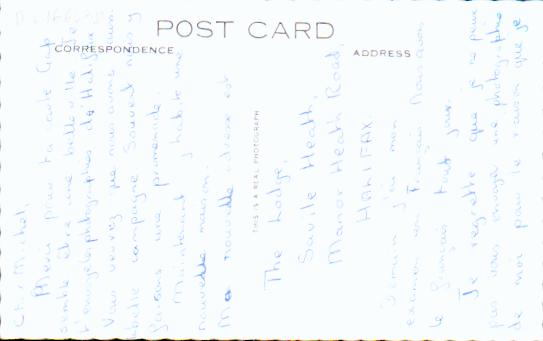 POST CARD
CORRESPONDENCE
ADDRESS
THIS IS A REAL PHOTOGRAPH
Cher Michel,
Merci pour ta carte Gap
semble être une belle ville Je
t'envoie photographies d'Halifax
Vous verrez que nous avons une
belle campagne Souvent nous y
faisons une promenade.
Maintenant j'habite une
nouvelle maison.
Ma nouvelle adresse est
The Lodge,
Savile Heath,
Manor Heath Road,
HALIFAX.
Demain j'ai mon
examen en Français Nous avons
le français tout jour.
Je regrette que je ne peux
pas vous envoyer une photographie
de moi pour le raison que je